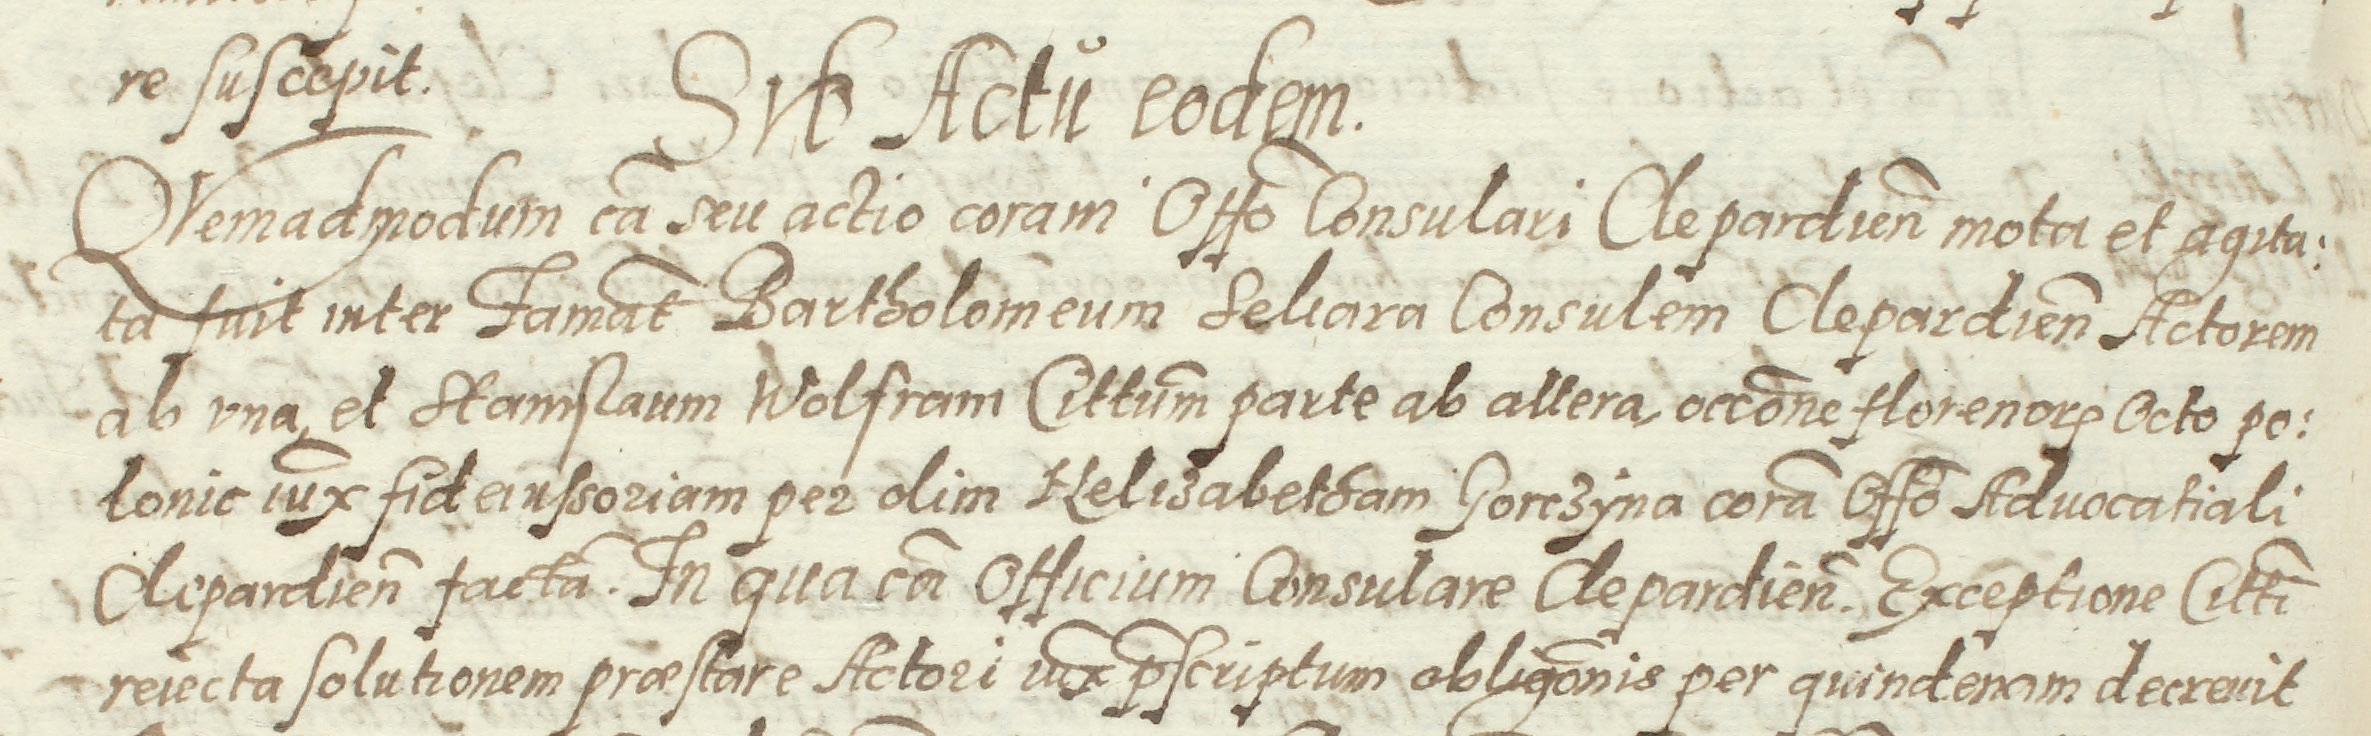 re suscepit.
Svb Actu eodem.
Qvemadmodum cã seu actio coram Offõ Consulari Clepardieñ mota et agita:
ta fuit inter Famãt Bartholomeum Seliara Consulem Clepardieñ Actorem
ab vna, et Stanislaum Wolfram Cittum̃ parte ab altera, occõne florenorꝝ Octo po:
lonic iux̃ fideiussoriam per olim Helizabetham Gorczÿna corã Offõ Aduocatiali
Clepardieñ factã. In qua cã Officium Consulare Clepardieñ. Exceptione Cittĩ
reiecta solutionem præstare Actori iux̃ p̃scriptum obligõnis per quindenam decreuit